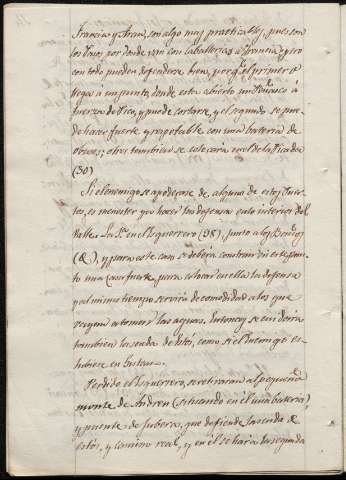 Francia y Aran, son algo mas practicables, pues son
los unos por donde van con caballerias a Francia, y no
con todo pueden defenderse bien, porq.e el primero
llega á un punto, donde esta abierto un Peñasco á
fuerza de Pico, y puede cortarse, y el segundo se pue-
de hacer fuerte y respetable con una bateria de
obuses; otra tambien se colocaria en el de la Picada
(30)
Si el enemigo se apoderase de alguno de estos Puer-
tos, es menester yr á hacer la defensa en lo interior del
Valle. La 1.a en el Esguerrero (98), junto a los Baños
(&), y para este caso se deberá construir en este pun-
to una Casa fuerte, para colocar en ella la defensa
y al mismo tiempo serviria de comodidad a los que
vayan a tomar las aguas. Entonces se cuidaria
tambien la senda de hitos, como si el Enemigo es-
tubiese en
Perdido el Esguerrero, se retiraran al pequeño
monte de Andren (situando en él una bateria),
y puente de Subera, que defiende la senda de
estos, y camino real, y en él se hara la segunda